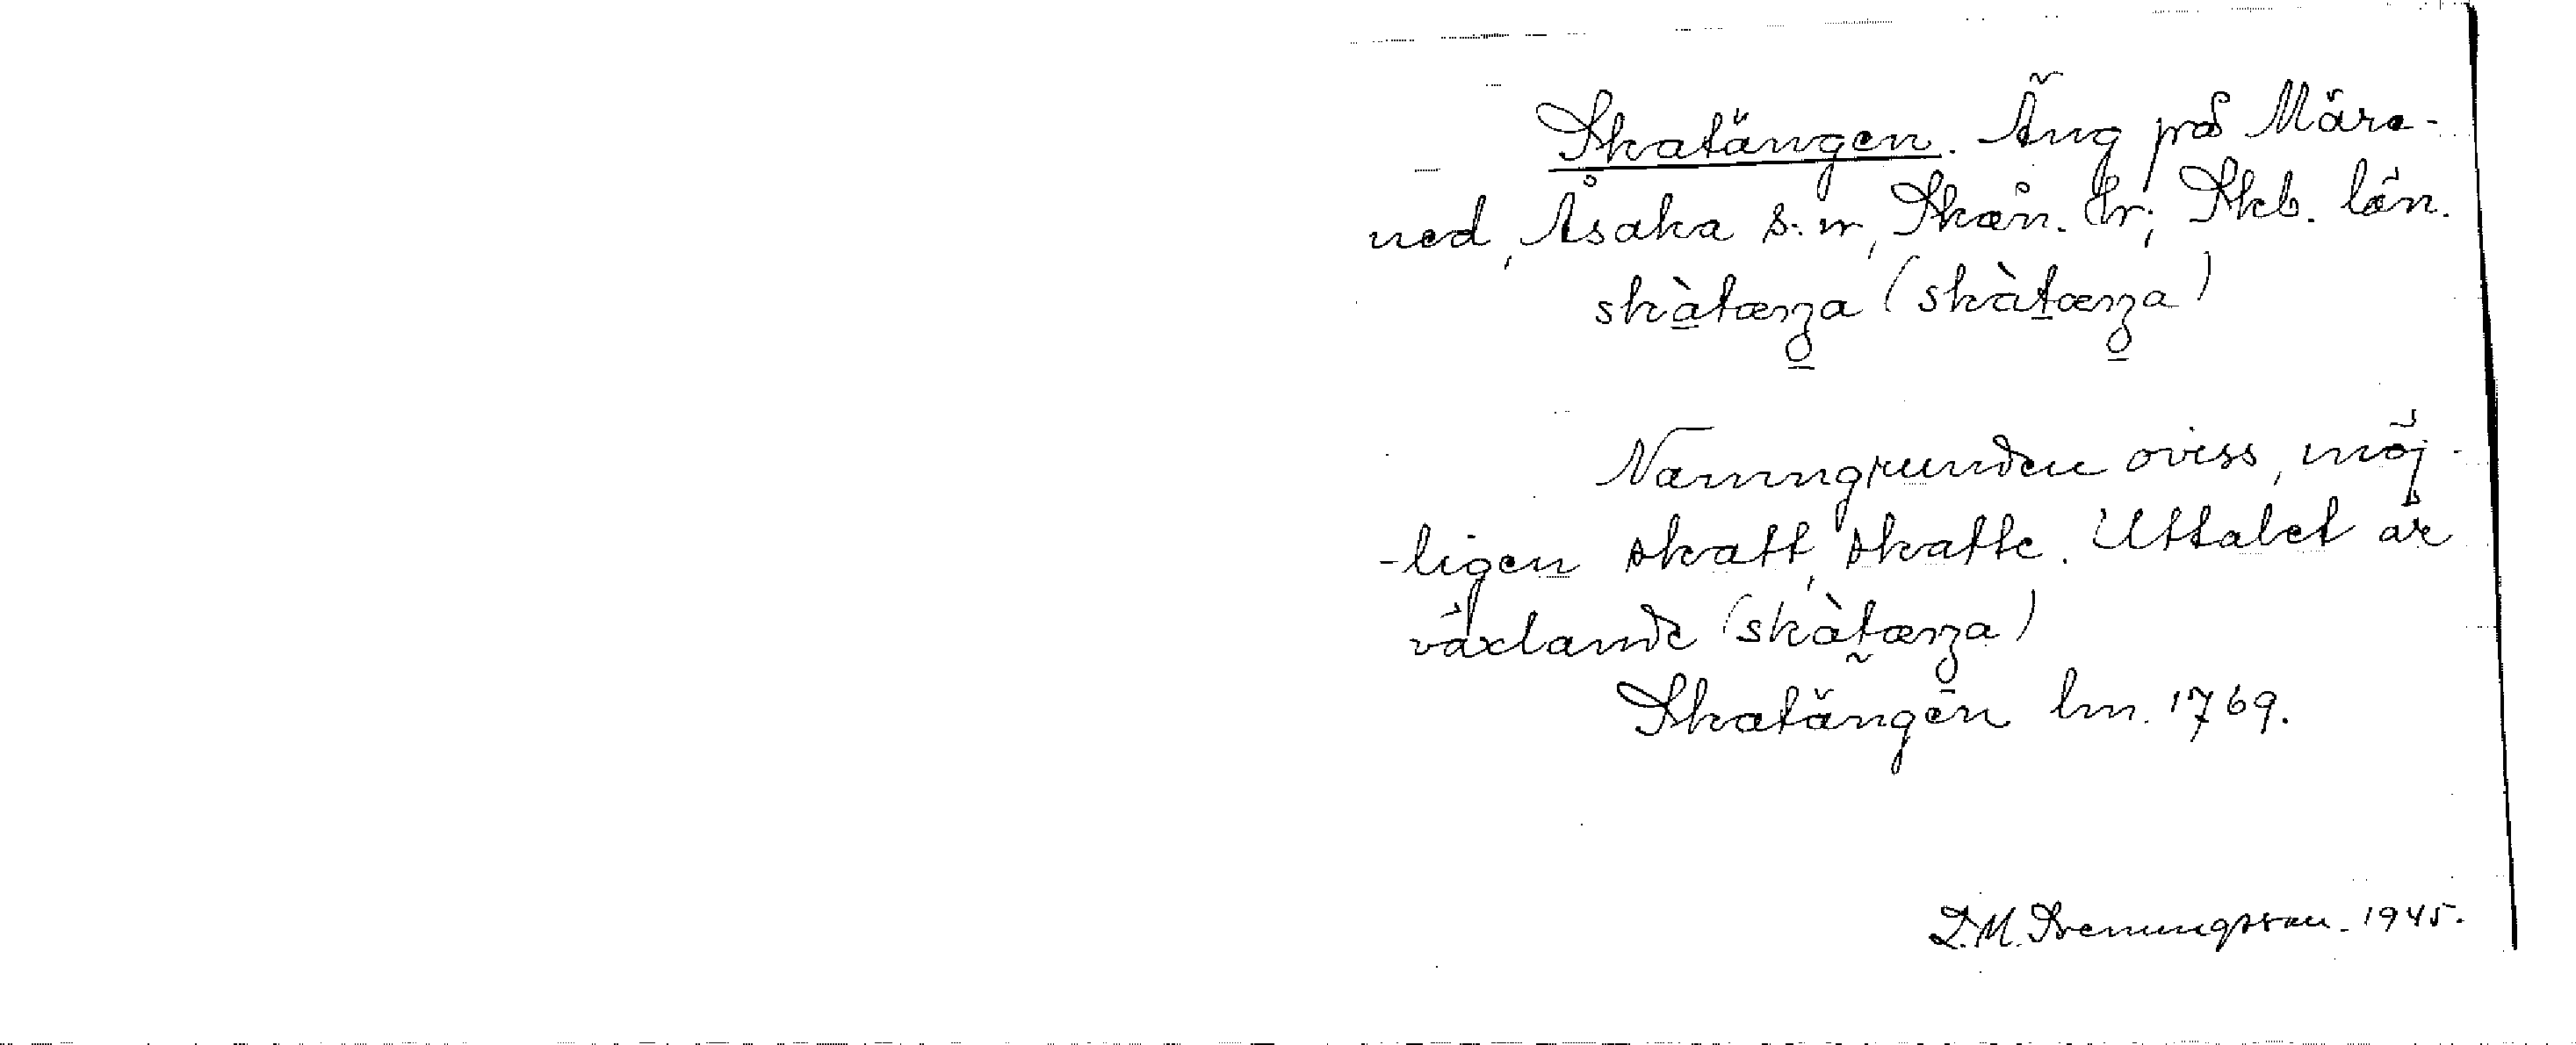 Skatängen. Äng på Märe-
ned, Åsaka s:n, Skån. hr; Skb. län.
skàtæŋa (skàtæŋa)
Namngrunden oviss, möj-
-ligen skatt, skatte. Uttalet är
växlande (skàtæŋa)
Skatängen lm. 1769.
D.M. Svenungsson. 1945.